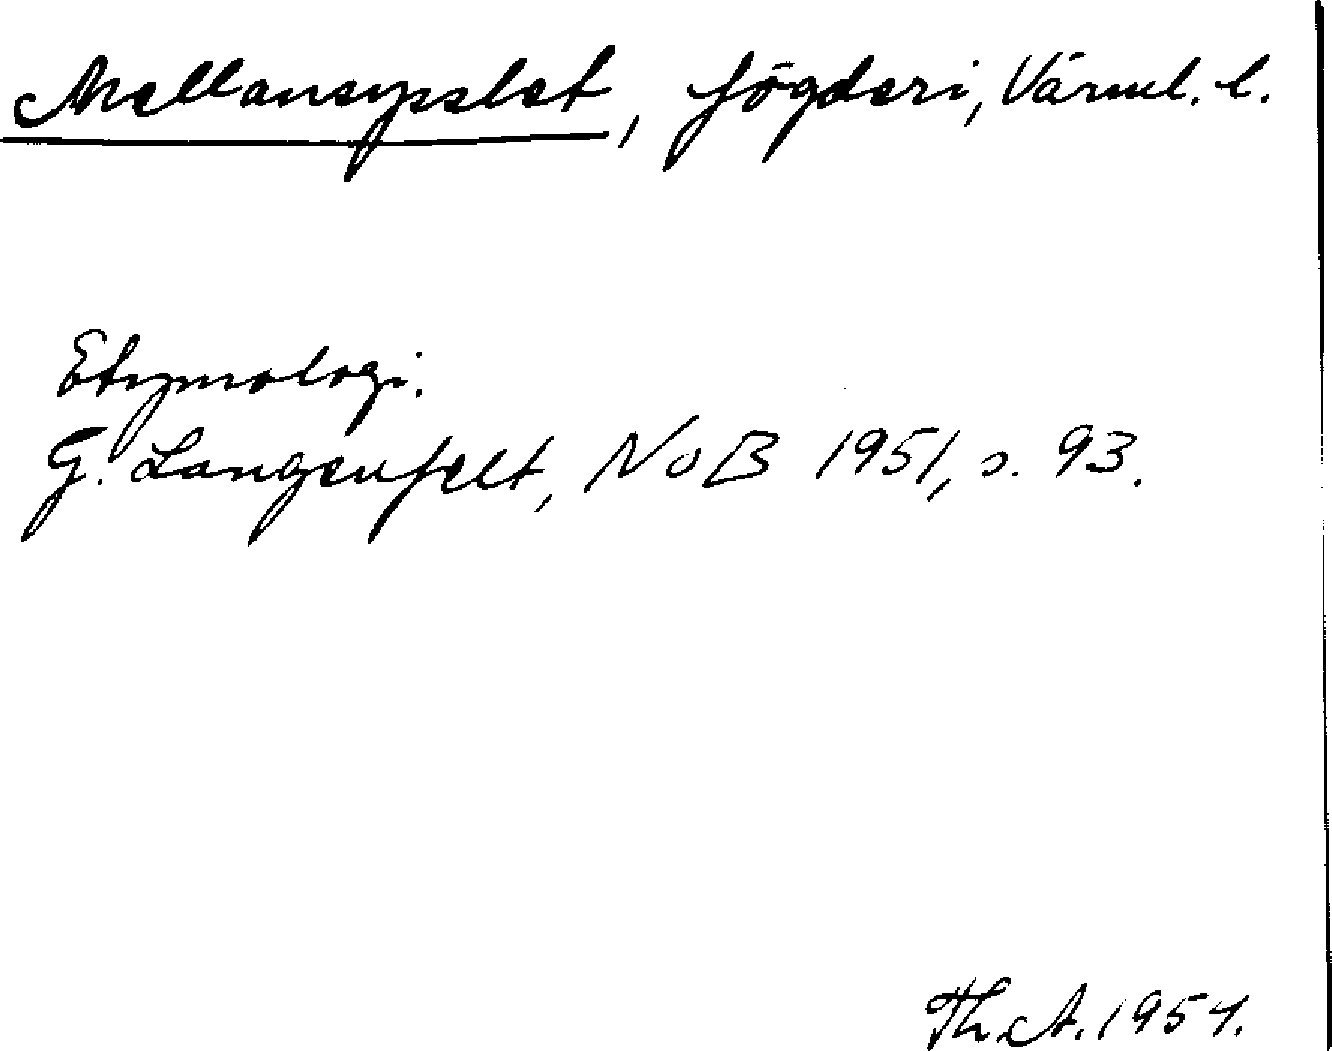 Mellansysslet, fögderi, Värml. l.
Etymologi.
G. Langenfelt, NoB 1951, s. 93.
Th. A. 1954.